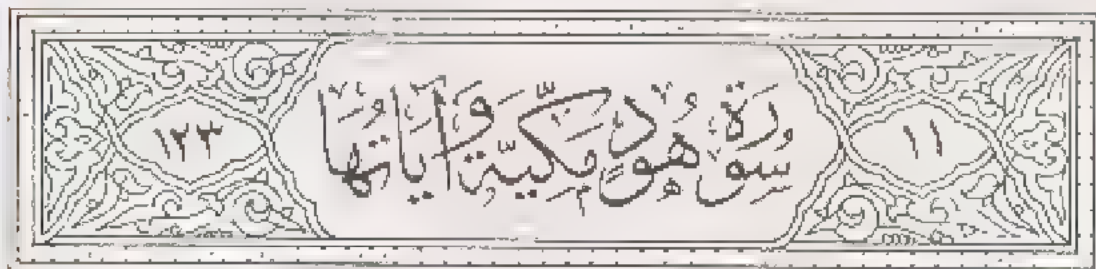 ١١ سُورَةُ هُودٍ مَكِّيَّةٌ وَآيَاتُهَا ١٢٣